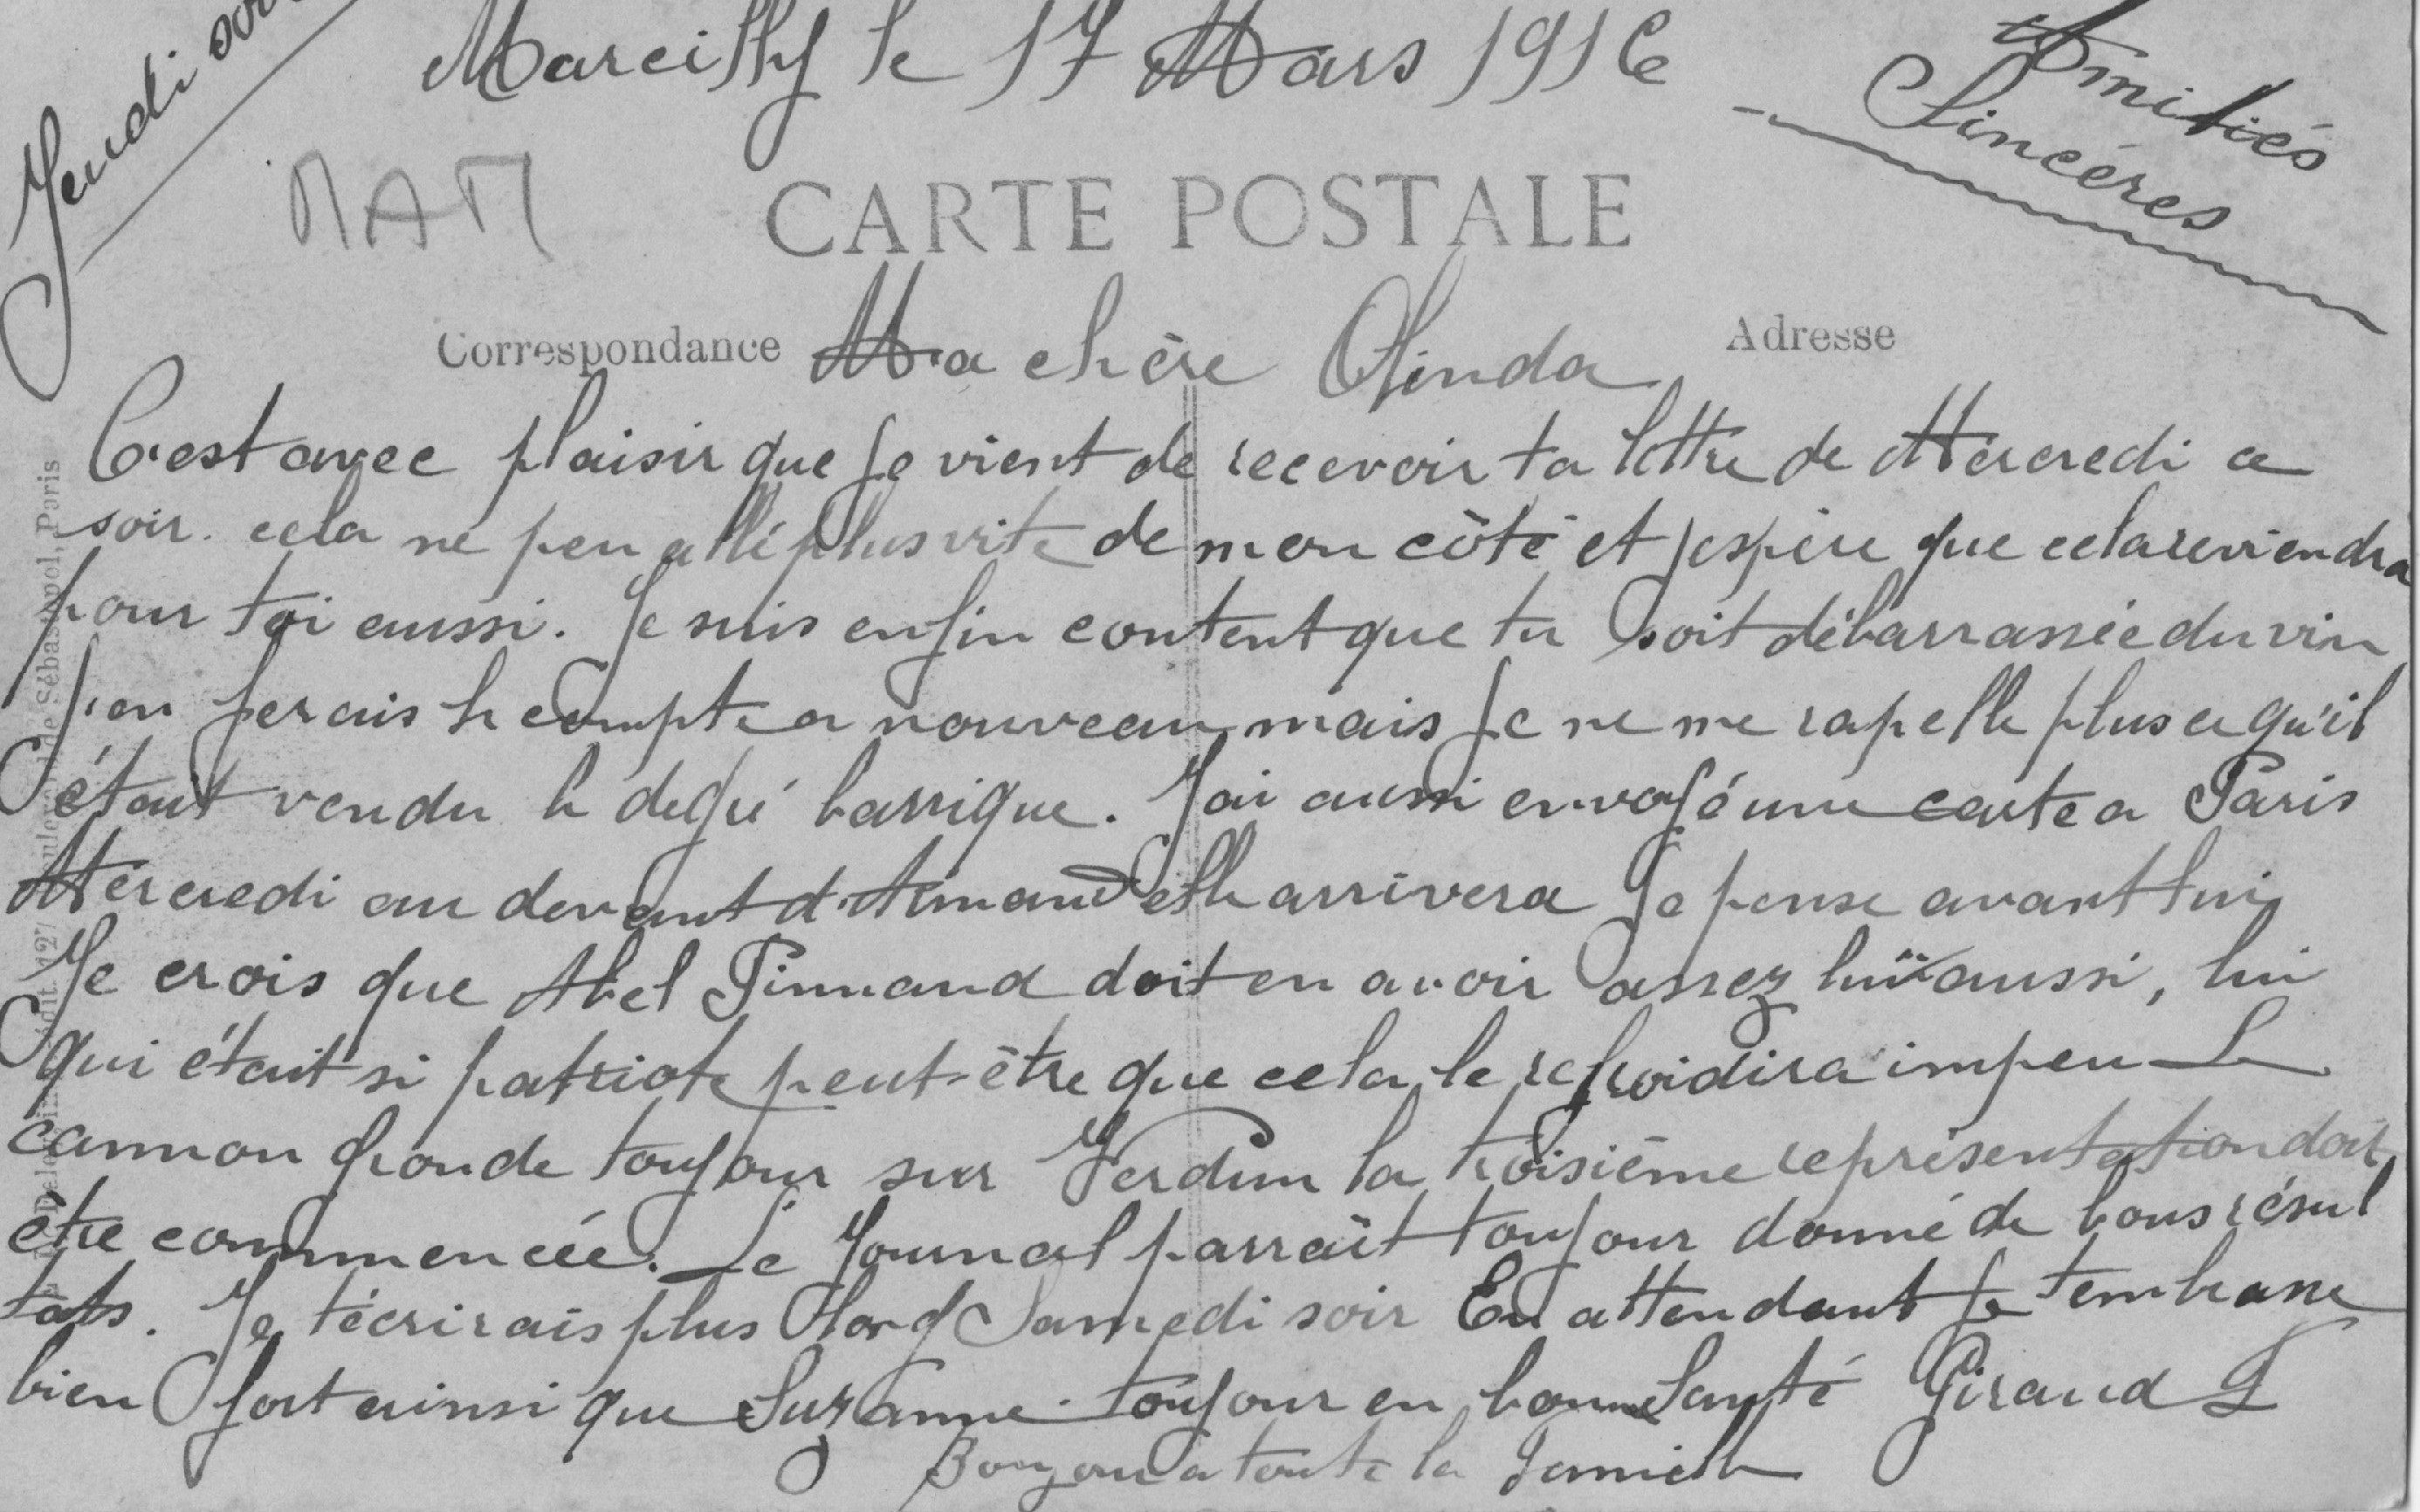 Jeudi soir
Marcilly le 17 Mars 1916
Amitiés
Sincéres
MAM
CARTE POSTALE
Correspondance
Adresse
Ma chère Olinda
C'est avec plaisir que je vient de recevoir ta lettre de Mercredi ce
soir. cela ne peu allé plus vite de mon côté et j'espère que cela reviendra
pour toi aussi. Je suis enfin content que tu soit débarrassée du vin
j'en ferais le compte a nouveau mais je ne me rapelle plus ce qu'il
était vendu le degré barrique. J'ai aussi envoyé une carte a Paris
Mercredi au devant d'Armand elle arrivera je pense avant lui
Je crois que Abel Pinnaud doit en avoir assez lui aussi, lui
qui était si patriote peut-être que cela le refroidira impeu Le
cannon gronde toujour sur Verdun la troisième représentation doit
être commencée. Le Journal parraît toujour donné de bons résul
tats. Je técrirais plus long Samedi soir En attendant je t'embrasse
bien fort ainsi que Suzanne toujour en bonne Santé Giraud L
Bonjour a toute la famielle
Édit 127 Boulevard de Sébastopol, Paris